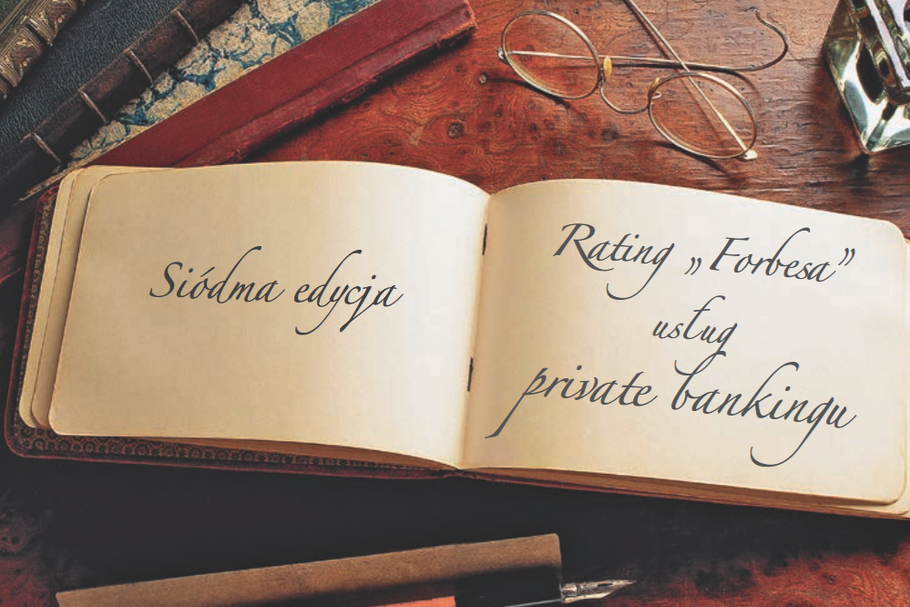 Siódma edycja
Rating „Forbesa”
usług
private bankingu